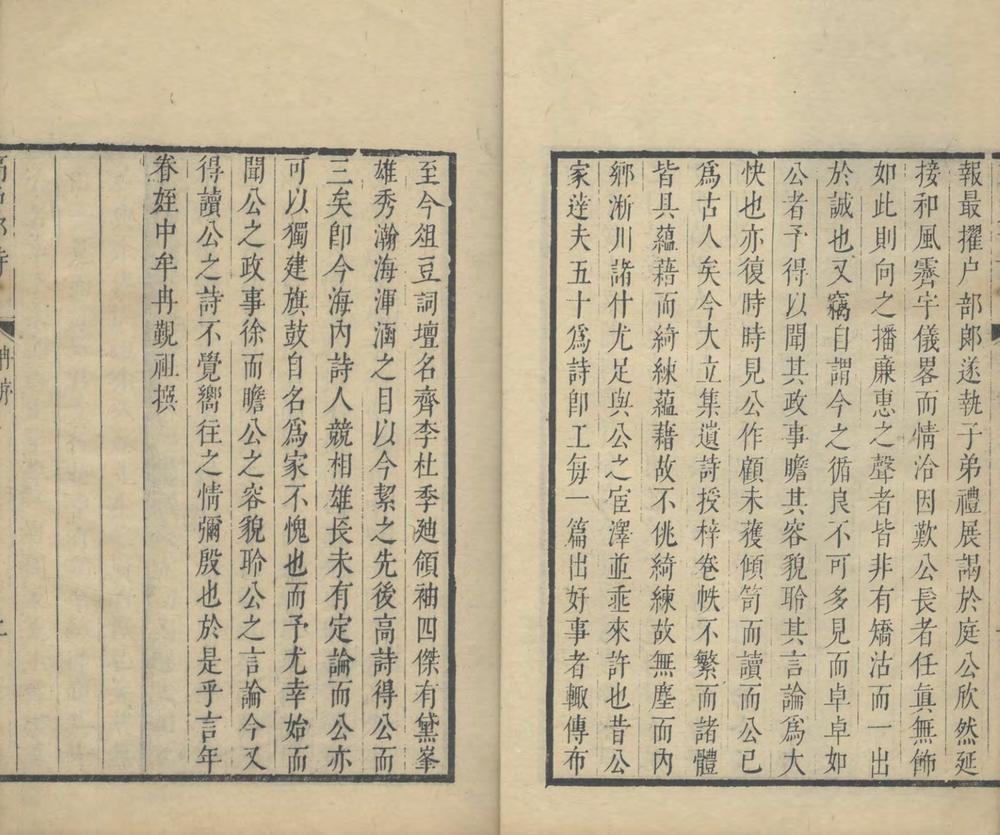 報最擢户部郞遂執子弟禮展謁於庭公欣然延
接和風霽宇儀畧而情洽因歎公長者任眞無飾
如此則向之播廉惠之聲者皆非有矯沽而一出
於誠也又竊自謂今之循良不可多見而卓卓如
公者予得以聞其政事瞻其容貌聆其言論爲大
快也亦復時時見公作顧未獲傾笥而讀而公已
爲古人矣今大立集遺詩授梓卷帙不繁而諸體
皆具蘊藉而綺練蘊藉故不佻綺練故無塵而內
鄕淅川諸什尤足與公之宦澤並垂來許也昔公
家逹夫五十爲詩卽工每一篇出好事者輙傳布
至今俎豆詞壇名齊李杜季廸領袖四傑有黛峯
雄秀瀚海渾涵之目以今絜之先後高詩得公而
三矣卽今海內詩人競相雄長未有定論而公亦
可以獨建旗鼓自名爲家不愧也而予尤幸始而
聞公之政事徐而瞻公之容貌聆公之言論今又
得讀公之詩不覺嚮往之情彌殷也於是乎言年
眷姪中牟冉覲祖撰